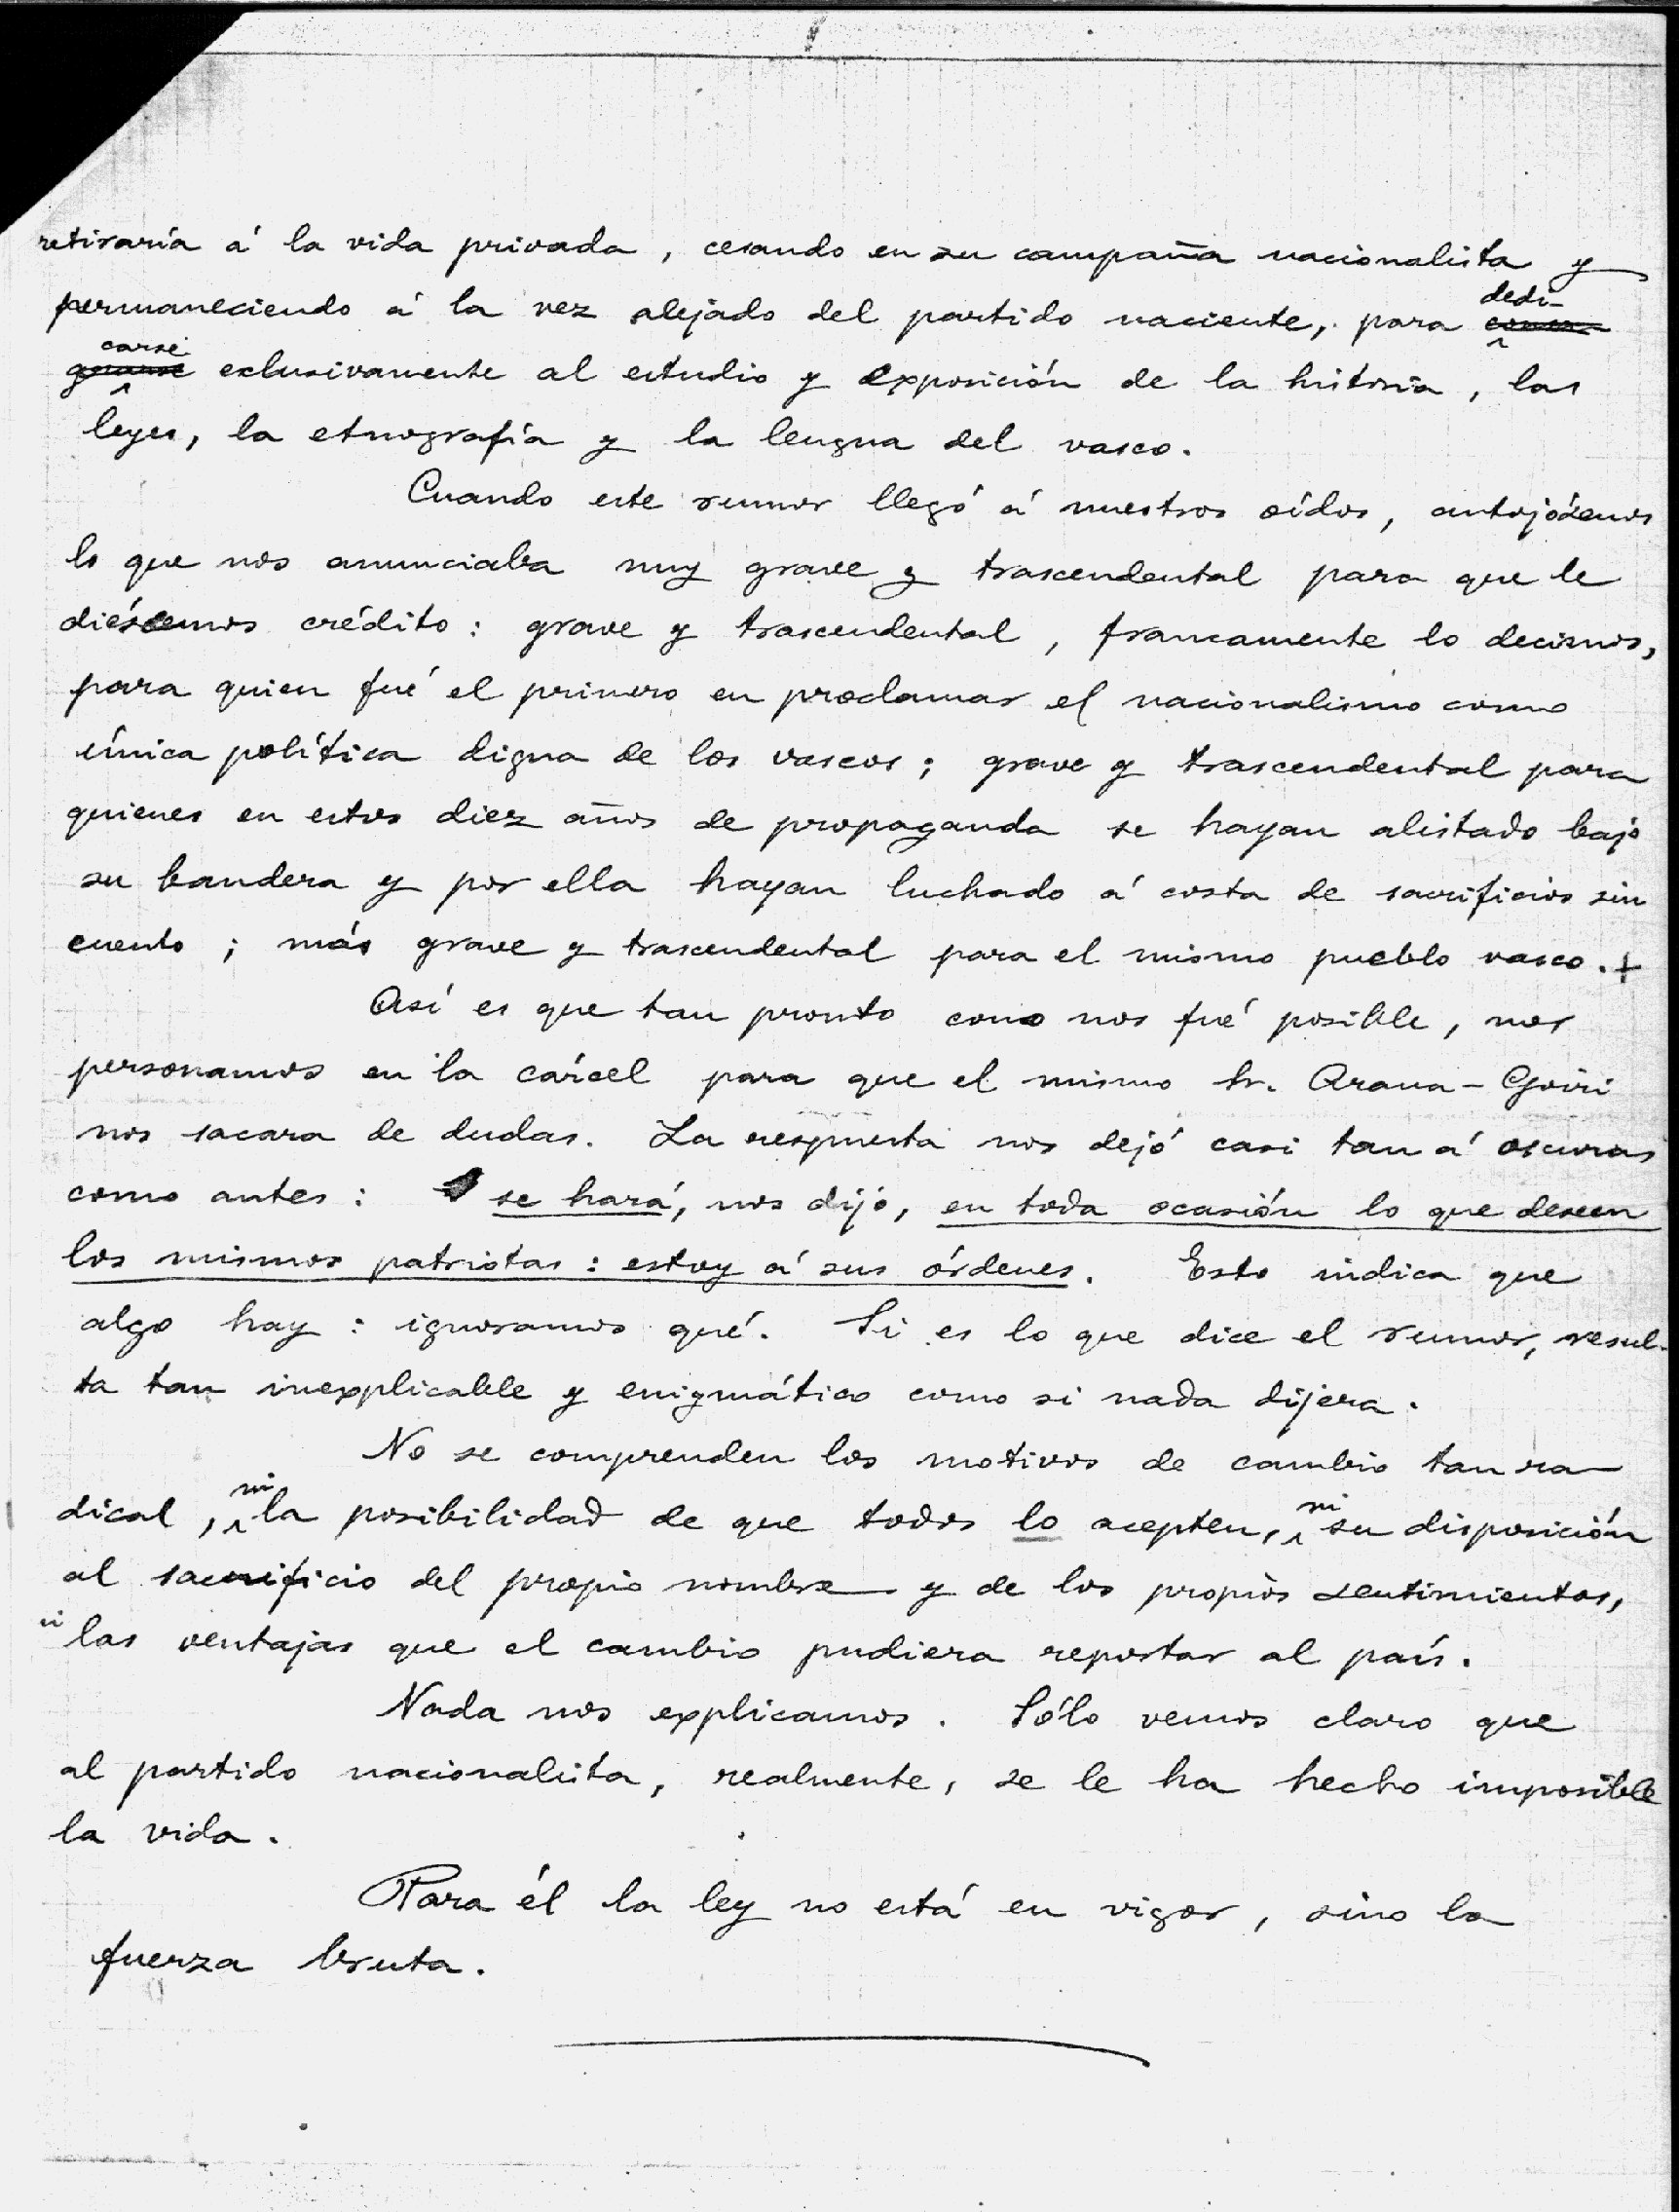 retiraría á la vida privada, cesando en su campaña nacionalista y
permaneciendo á la vez alejado del partido naciente, para dedi-
carse exclusivamente al estudio y exposición de la historia, las
leyes, la etnografía y la lengua del vasco.
Cuando este rumor llegó á nuestros oídos, antojósenos
lo que nos anunciaba muy grave y trascendental para que le
diésemos crédito: grave y trascendental, francamente lo decimos,
para quien fué el primero en proclamar el nacionalismo como
única política digna de los vascos; grave y trascendental para
quienes en estos diez años de propaganda se hayan alistado bajo
su bandera y por ella hayan luchado á costa de sacrificios sin
cuento; más grave y trascendental para el mismo pueblo vasco.+
Así es que tan pronto como nos fué posible, nos
personamos en la cárcel para que el mismo Sr. Arana-Goiri
nos sacara de dudas. La respuesta nos dejó casi tan á oscuras
como antes: se hará, nos dijo, en toda ocasión lo que deseen
los mismos patriotas: estoy á sus órdenes. Esto indica que
algo hay: ignoramos qué. Si es lo que dice el rumor, resul-
ta tan inexplicable y enigmático como si nada dijera.
No se comprenden los motivos de cambio tan ra-
dical, ni la posibilidad de que todos lo acepten, ni su disposición
al sacrificio del propio nombre y de los propios sentimientos,
ni las ventajas que el cambio pudiera reportar al país.
Nada nos explicamos. Sólo vemos claro que
al partido nacionalista, realmente, se le ha hecho imposible
la vida.
Para él la ley no está en vigor, sino la
fuerza bruta.